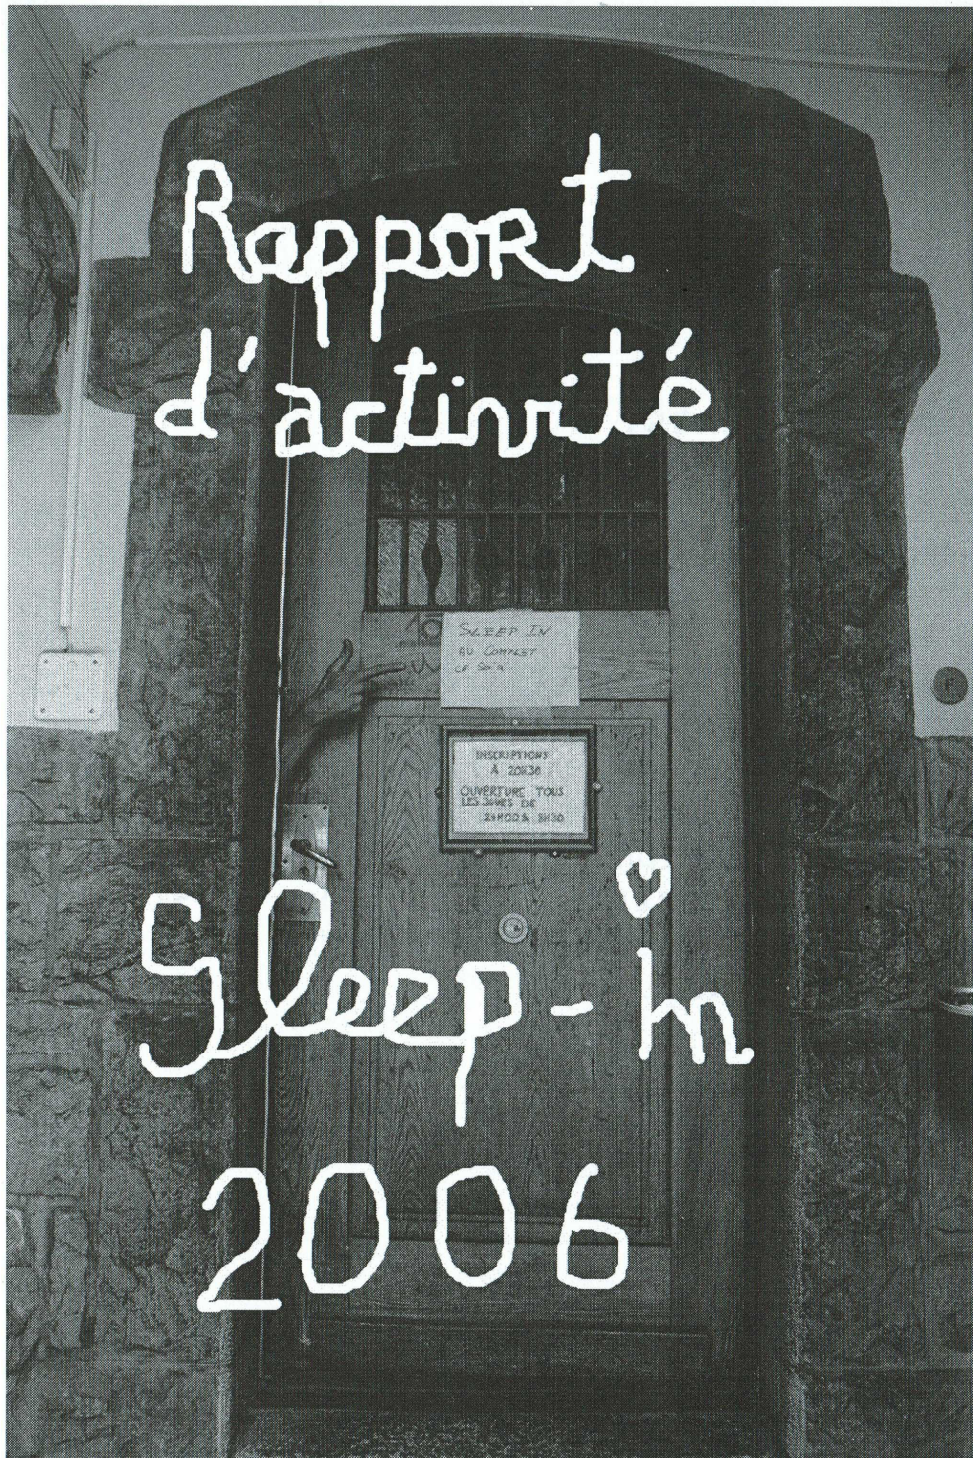 Rapport
d'activité
10
SLEEP IN
AU COMPLET
CE SOIR
INSCRIPTIONS
À 20H30
OUVERTURE TOUS
LES JOURS DE
21H00 à 8H30
Sleep-in
2006